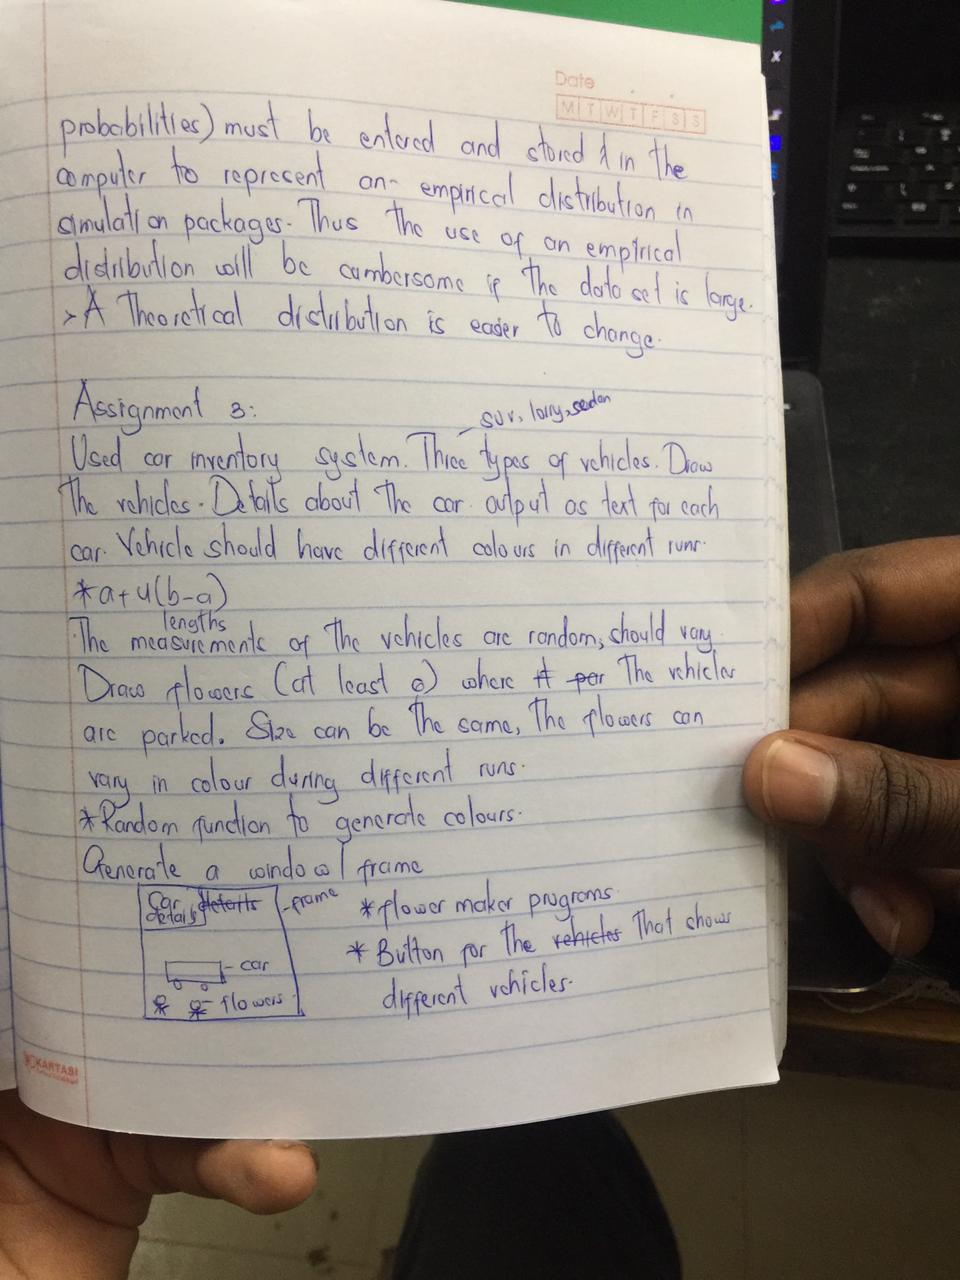 Date
M T W T F S S
probabilities) must be entered and stored in the
computer to represent an empirical distribution in
simulation packages. Thus the use of an empirical
distribution will be cumbersome if the data set is large.
> A Theoretical distribution is easier to change.
Assignment 3:
suv, lorry, sedan
Used car inventory system. Three types of vehicles. Draw
the vehicles. Details about the car output as text for each
car. Vehicle should have different colours in different runs.
*a+u(b-a)
lengths
The measurements of the vehicles are random, should vary.
Draw flowers (at least 2) where the vehicles
are parked. Size can be the same, the flowers can
vary in colour during different runs.
*Random function to generate colours.
Generate a window/frame
Car details
-frame
- car
flowers
* flower maker programs.
* Button for the vehicles that shows
different vehicles.
KARTASI